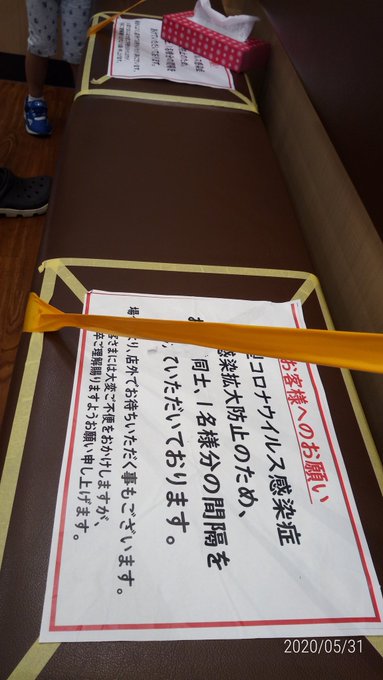 お客様へのお願い
型コロナウイルス感染症
感染拡大防止のため、
お 同士、1名様分の間隔を
ていただいております。
場 り、店外でお待ちいただく事もございます。
さまには大変ご不便をおかけしますが、
卒ご理解賜りますようお願い申し上げます。
2020/05/31